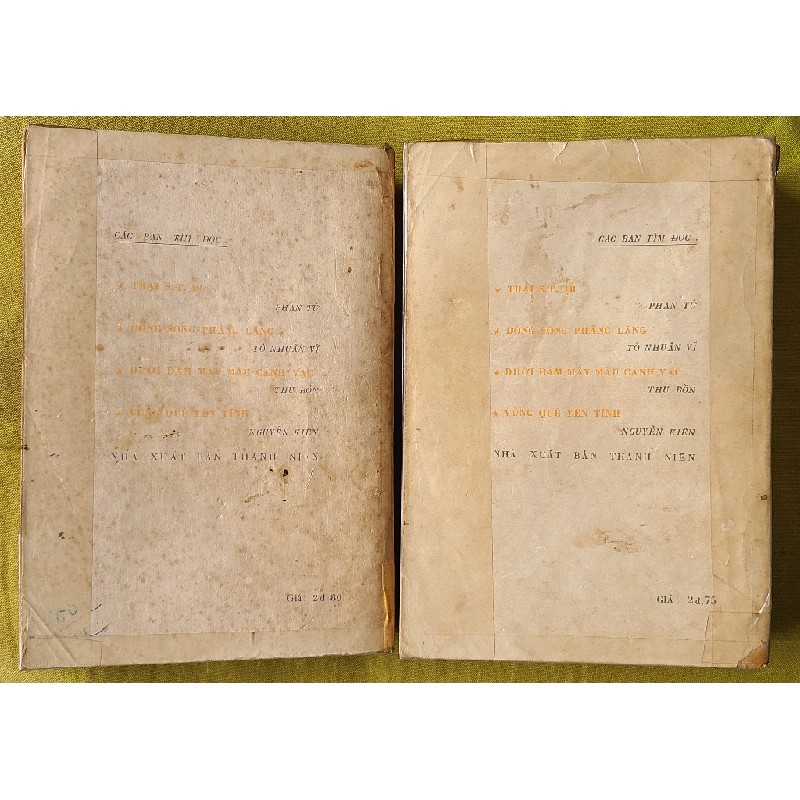 CÁC BẠN TÌM ĐỌC:
PHAN TỨ
★ DÒNG SÔNG PHẲNG LẶNG
TÔ NHUẬN VĨ
★ ĐÁM MÂY MÀU CÁNH VẠC
THU BỒN
★ VÙNG QUÊ YÊN TĨNH
NGUYỄN KIÊN
NHÀ XUẤT BẢN THANH NIÊN
Giá: 2đ 80
CÁC BẠN TÌM ĐỌC:
PHAN TỨ
★ DÒNG SÔNG PHẲNG LẶNG
TÔ NHUẬN VĨ
★ ĐÁM MÂY MÀU CÁNH VẠC
THU BỒN
★ VÙNG QUÊ YÊN TĨNH
NGUYỄN KIÊN
NHÀ XUẤT BẢN THANH NIÊN
GIÁ: 2đ 75